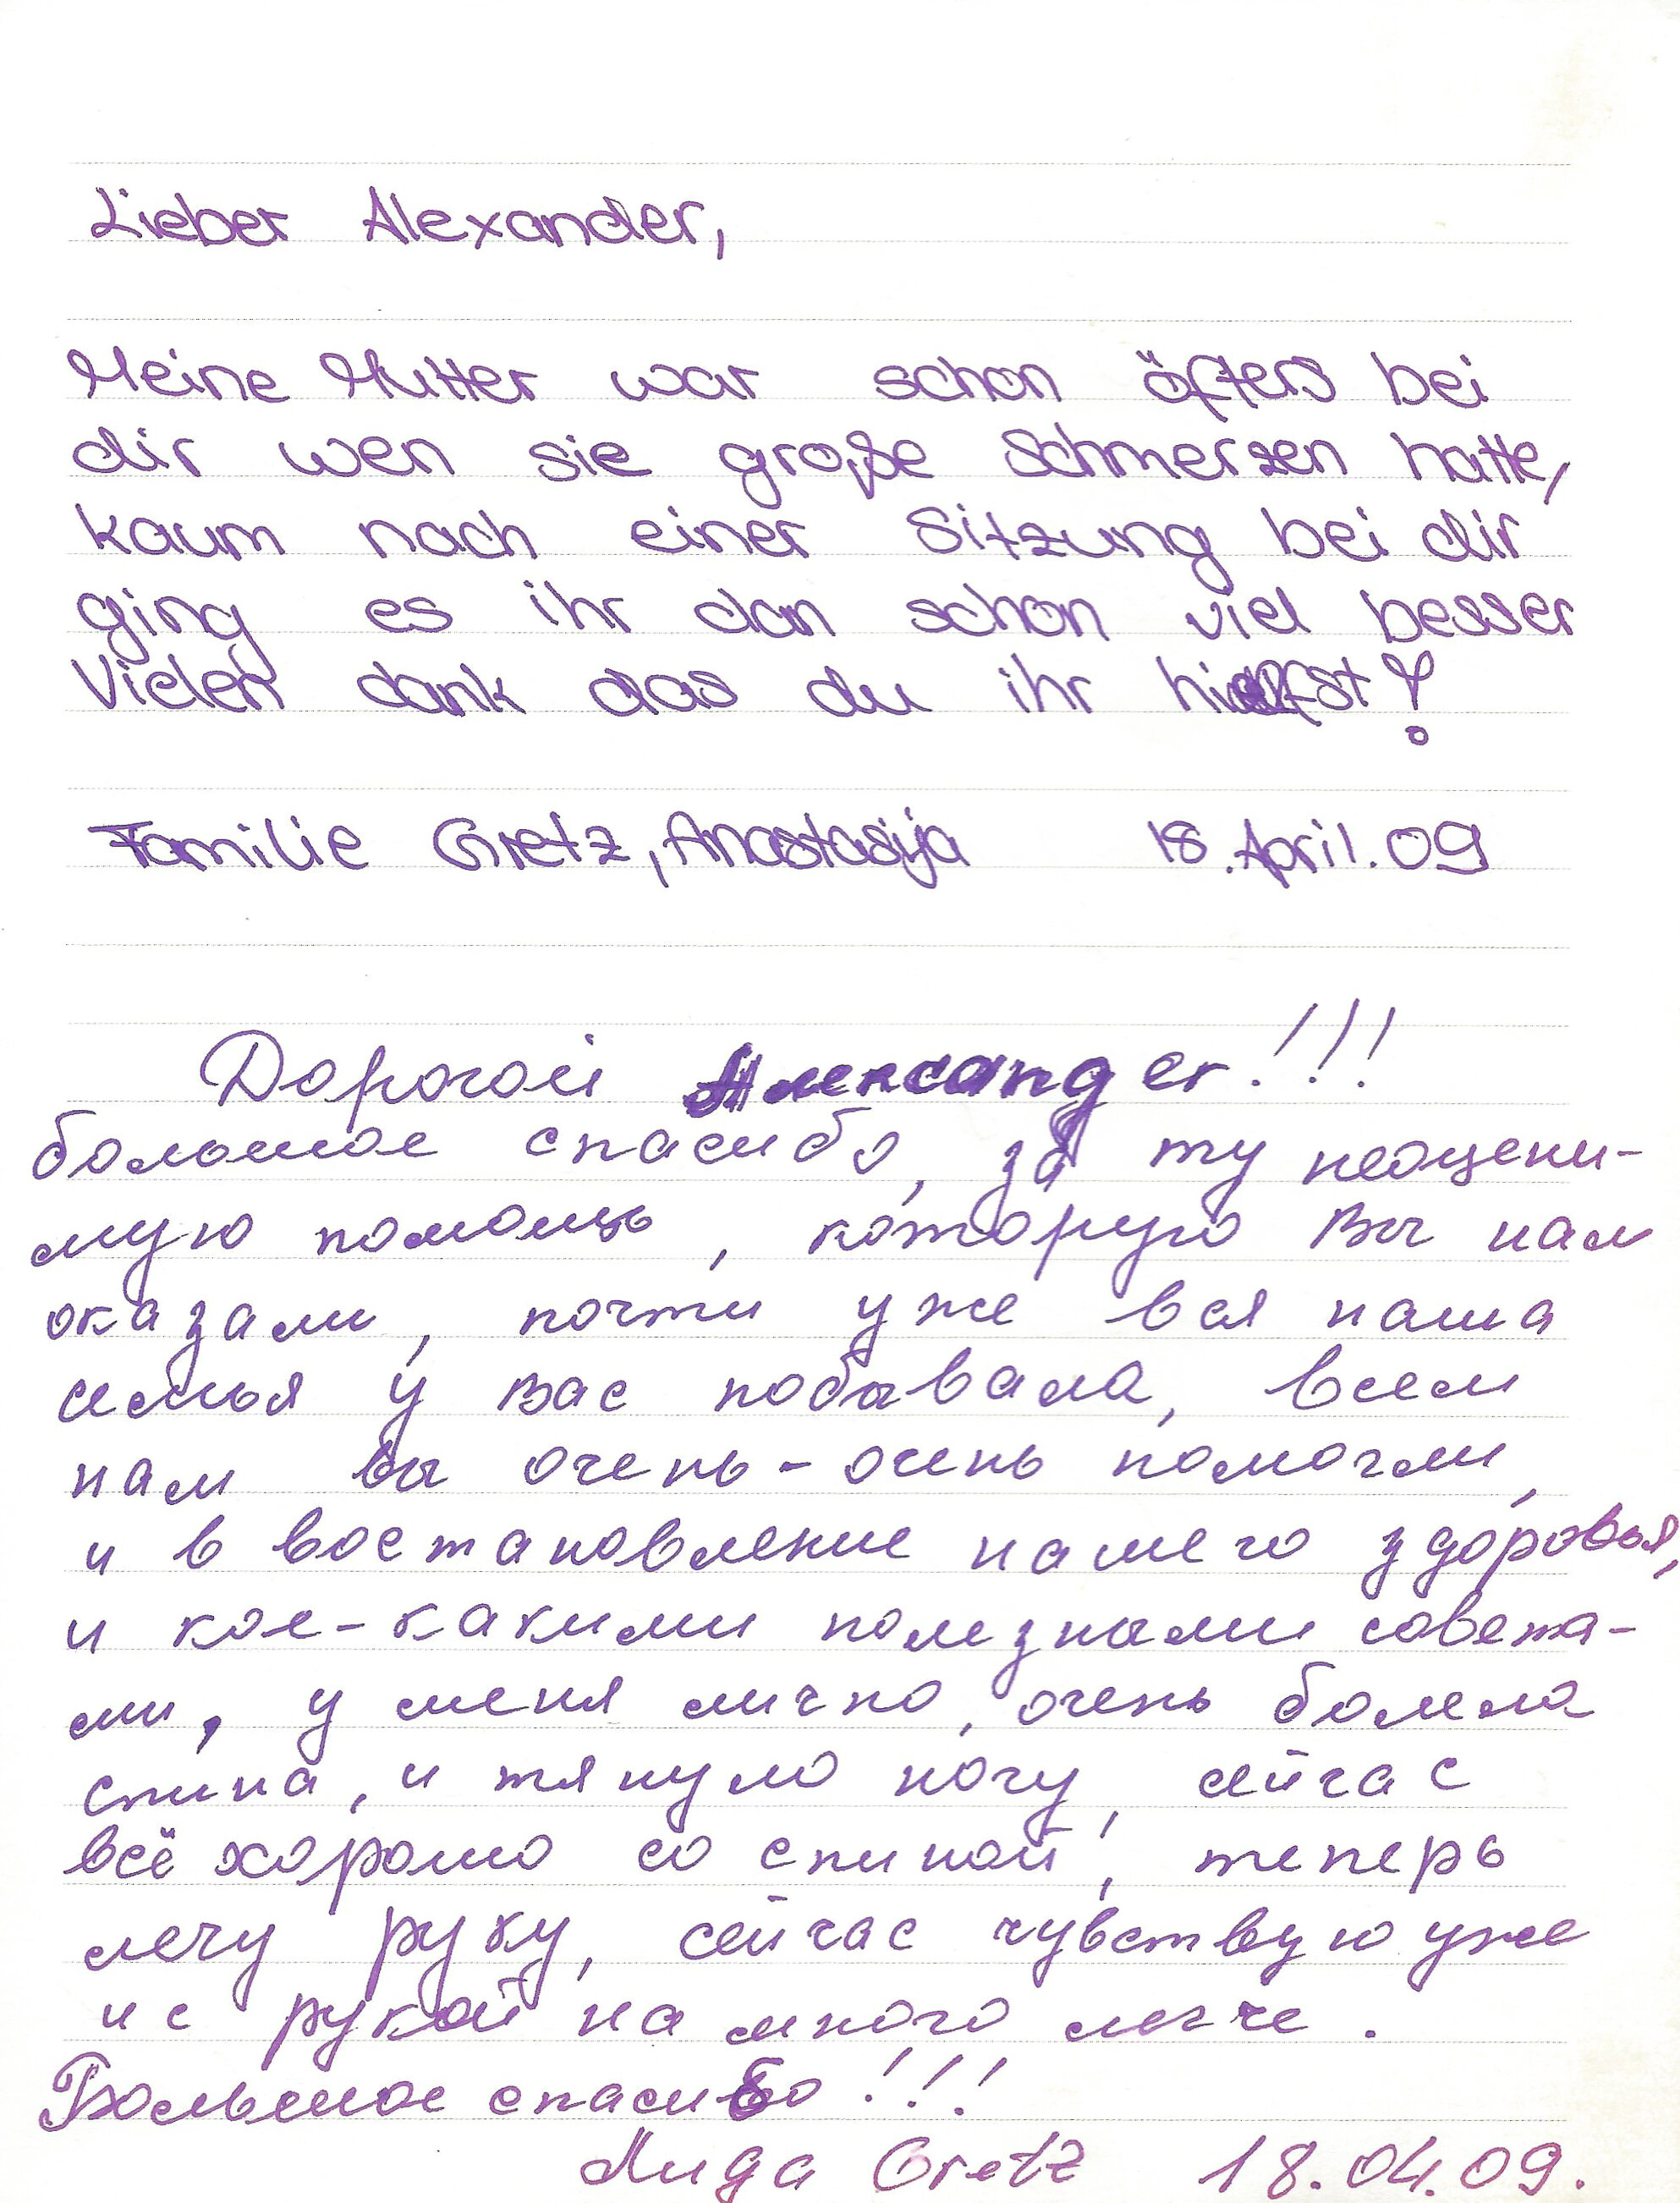 Lieber Alexander,
Meine Mutter war schon öfters bei
dir wen sie große Schmerzen hatte,
kaum nach einer Sitzung bei dir
ging es ihr dan schon viel besser
Vielen dank das du ihr hielfst!
Familie Gretz, Anastasija 18. April. 09
Дорогой Александer!!!
большое спасибо, за ту неоцени-
мую помощь, которую Вы нам
оказали, почти уже вся наша
семья у Вас побывала, всем
нам вы очень-очень помогли,
и в востановление нашего здоровья,
и кое-какими полезными совета-
ми, у меня лично, очень болела
спина, и тянуло ногу, сейчас
всё хорошо со спиной, теперь
лечу руку, сейчас чувствую уже
и с рукой на много легче.
Большое спасибо!!!
Лида Gretz 18.04.09.